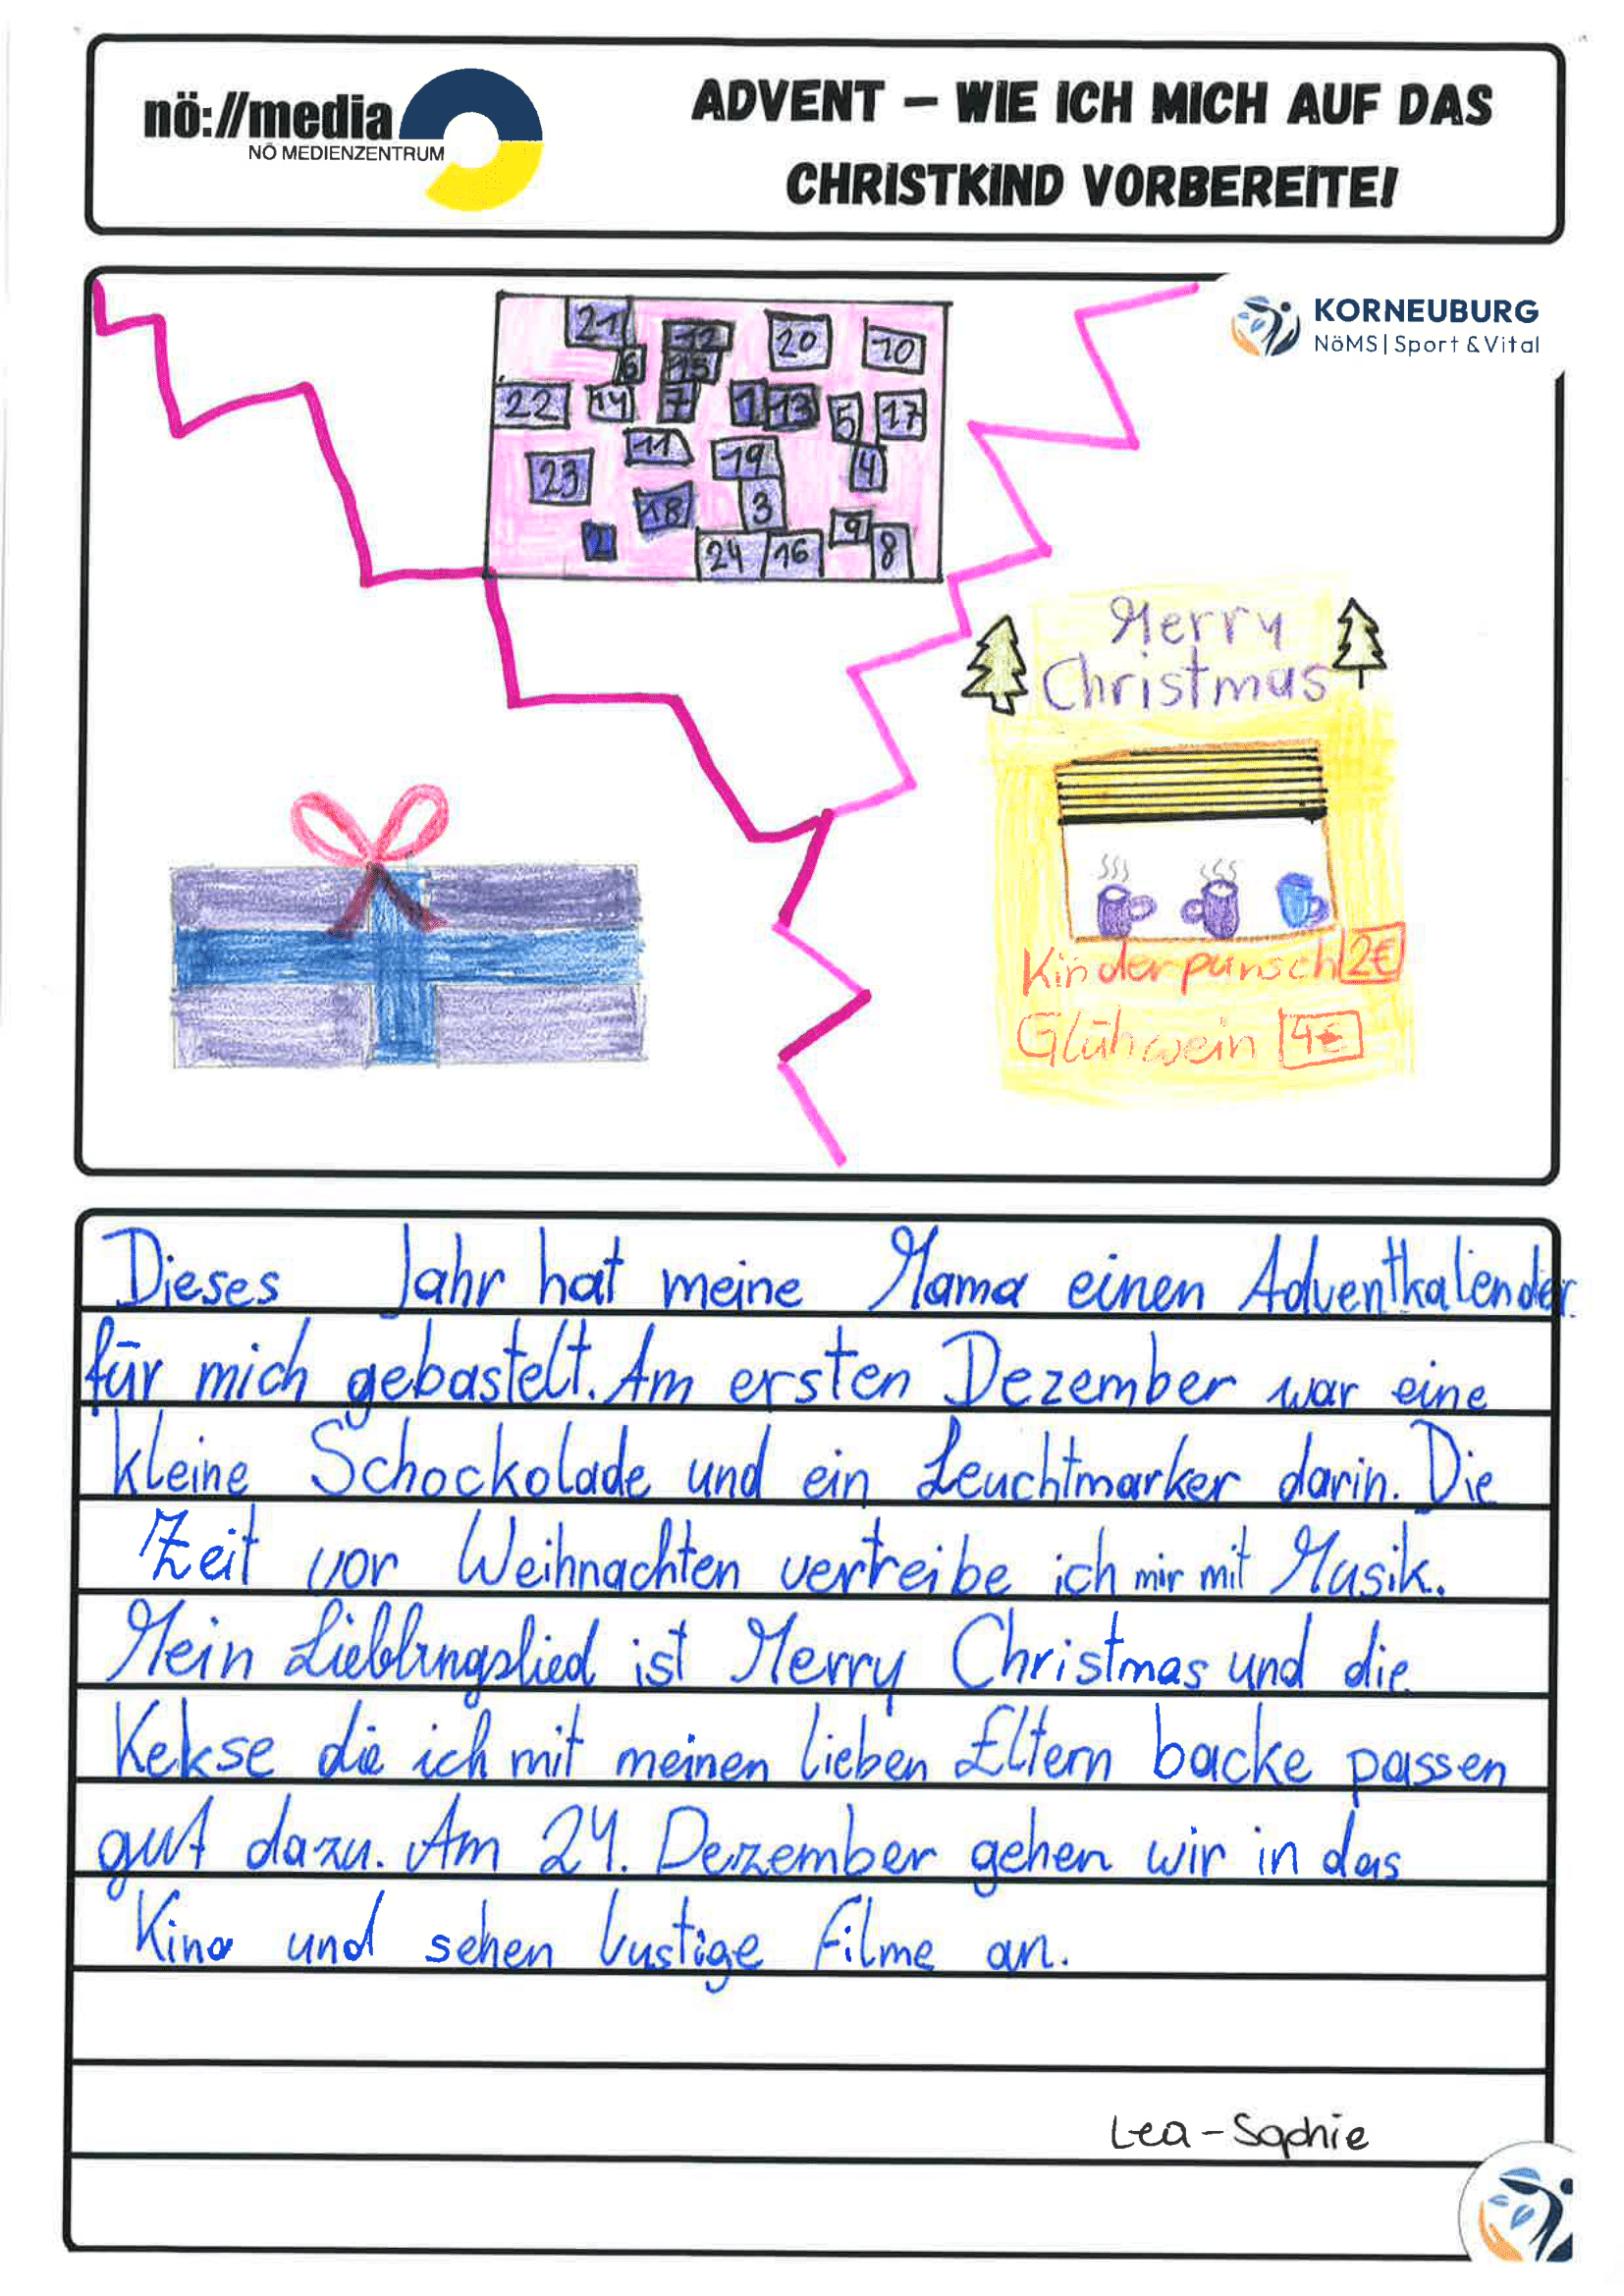 nö://media
NÖ MEDIENZENTRUM
ADVENT – WIE ICH MICH AUF DAS
CHRISTKIND VORBEREITE!
KORNEUBURG
NöMS | Sport & Vital
21 12 20 10
6 15
22 14 7 1 13 5 17
11 19 4
23 18 3
2 24 16 9 8
Merry
Christmas
Kinderpunsch 2€
Glühwein 4€
Dieses Jahr hat meine Mama einen Adventkalender
für mich gebastelt. Am ersten Dezember war eine
kleine Schockolade und ein Leuchtmarker darin. Die
Zeit vor Weihnachten vertreibe ich mir mit Musik.
Mein Lieblingslied ist Merry Christmas und die
Kekse die ich mit meinen lieben Eltern backe passen
gut dazu. Am 24. Dezember gehen wir in das
Kino und sehen lustige Filme an.
Lea-Sophie